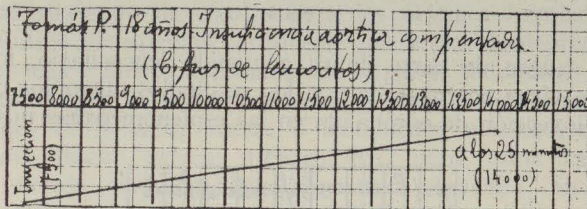 Tomás P. - 18 años. Insuficiencia aórtica compensada.
(Cifras de leucocitos)
7500 8000 8500 9000 9500 10000 10500 11000 11500 12000 12500 13000 13500 14000 14500 15000
Inyección
(7500)
a los 25 minutos
(14000)